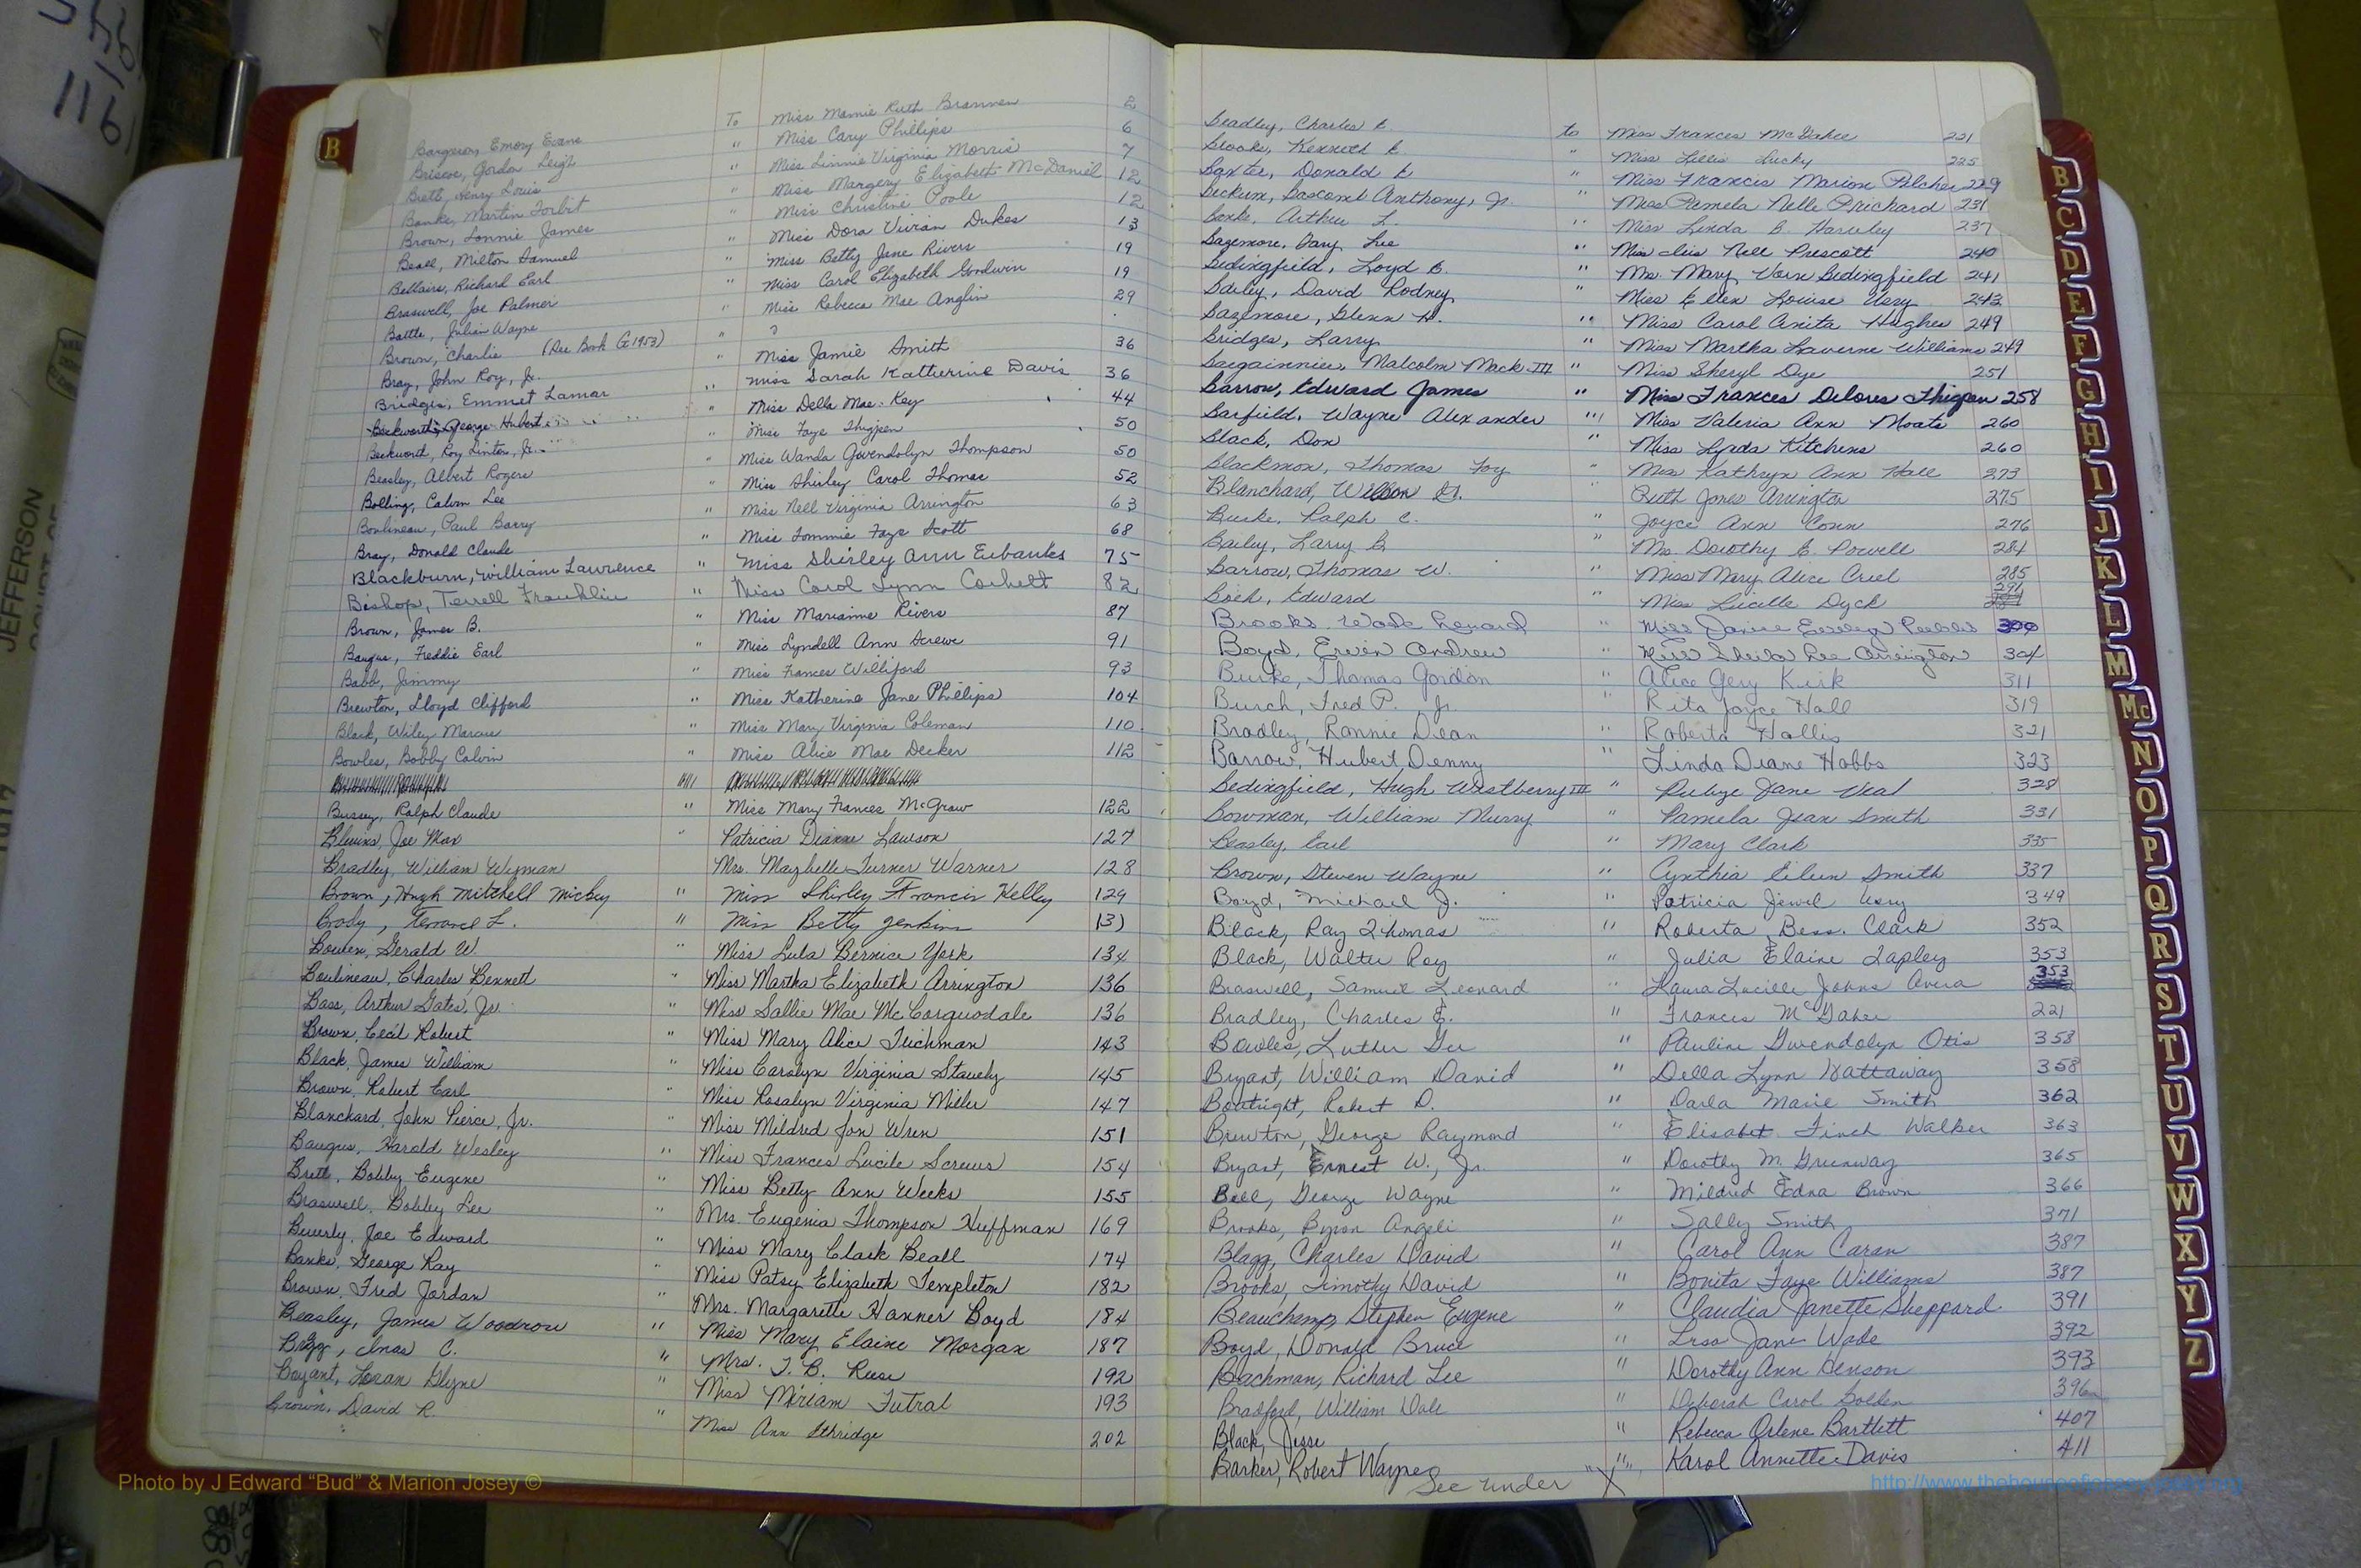 B
Bargeron, Emory Evans To Miss Mamie Ruth Brannen 2
Briscoe, Gordon Leigh " Miss Cary Phillips 6
Brett, Henry Louis " Miss Linnie Virginia Morris 7
Banks, Martin Torbit " Miss Margery Elizabeth McDaniel 12
Brown, Lonnie James " Miss Christine Poole 12
Beall, Milton Samuel " Miss Dora Vivian Dukes 13
Bellairs, Richard Earl " Miss Betty Jane Rivers 19
Braswell, Joe Palmer " Miss Carol Elizabeth Goodwin 19
Battle, Julian Wayne " Miss Rebecca Mae Anglin 29
Brown, Charlie (See Book G 1953) " ?
Bray, John Roy, Jr. " Miss Jamie Smith 36
Bridges, Emmet Lamar " Miss Sarah Katherine Davis 36
Beckworth, George Hubert " Miss Della Mae Key 44
Beckworth, Roy Linton, Jr. " Miss Faye Thigpen 50
Beasley, Albert Rogers " Miss Wanda Gwendolyn Thompson 50
Bolling, Calvin Lee " Miss Shirley Carol Thomas 52
Boulineau, Paul Barry " Miss Nell Virginia Arrington 63
Bray, Donald Claude " Miss Tommie Faye Scott 68
Blackburn, William Lawrence " Miss Shirley Ann Eubanks 75
Bishop, Terrell Franklin " Miss Carol Lynn Corbett 82
Brown, James B. " Miss Marianne Rivers 87
Baugus, Freddie Earl " Miss Lyndell Ann Screws 91
Babb, Jimmy " Miss Frances Williford 93
Brewton, Lloyd Clifford " Miss Katherine Jane Phillips 104
Black, Wiley Marcus " Miss Mary Virginia Coleman 110
Bowles, Bobby Calvin " Miss Alice Mae Decker 112
Bussey, Ralph Claude " Miss Mary Frances McGraw 122
Blevins, Joe Max " Patricia Dianne Lawson 127
Bradley, William Wyman Mrs. Maybelle Turner Warner 128
Brown, Hugh Mitchell Mickey " Miss Shirley Francis Kelley 129
Brody, Terrance L. " Miss Betty Jenkins 131
Bowen, Gerald W. " Miss Lula Bernice York 134
Boulineau, Charles Bennett " Miss Martha Elizabeth Arrington 136
Bass, Arthur Gates, Jr. " Miss Sallie Mae McCorquodale 136
Brown, Cecil Robert " Miss Mary Alice Teichman 143
Black, James William " Miss Carolyn Virginia Stavely 145
Brown, Robert Earl " Miss Rosalyn Virginia Miller 147
Blanchard, John Pierce, Jr. " Miss Mildred Jon Wren 151
Baugus, Harold Wesley " Miss Frances Lucile Screws 154
Brett, Bobby Eugene " Miss Betty Ann Weeks 155
Braswell, Bobby Lee " Mrs. Eugenia Thompson Huffman 169
Beverly, Joe Edward " Miss Mary Clark Beall 174
Banks, George Ray " Miss Patsy Elizabeth Templeton 182
Brown, Fred Jordan " Mrs. Margarette Hanner Boyd 184
Beasley, James Woodrow " Miss Mary Elaine Morgan 187
C. " Mrs. T. B. Reese 192
Bryant, Loran Glyne " Miss Miriam Futral 193
Brown, David R. " Miss Ann Ethridge 202
Bradley, Charles E. to Miss Frances McGahee 221
Brooke, Kenneth E. " Miss Lillie Lucky 225
Baxter, Donald E " Miss Francis Marion Pilcher 229
Beckum, Bascomb Anthony, Jr. " Miss Pamela Nelle Prichard 231
Banks, Arthur L. " Miss Linda B. Harvley 237
Bazemore, Gary Lee " Miss Nell Prescott 240
Bedingfield, Loyd B. " Mrs. Mary Vern Bedingfield 241
Bailey, David Rodney " Miss Ellen Louise Usry 243
Bazemore, Glenn H. " Miss Carol Anita Hughes 249
Bridges, Larry " Miss Martha Laverne Williams 249
Bargainnier, Malcolm Mack III " Miss Sheryl Dye 251
Barrow, Edward James " Miss Frances Delores Thigpen 258
Barfield, Wayne Alexander " Miss Valeria Ann Moate 260
Black, Don " Miss Lynda Kitchens 260
Blackmon, Thomas Foy " Miss Kathryn Ann Hall 273
Blanchard, Wilson " Ruth Jones Arrington 275
Burke, Ralph C. " Joyce Ann Conn 276
Bailey, Larry B. " Mrs. Dorothy E. Powell 284
Barrow, Thomas W. " Miss Mary Alice Creel 285
Edward " Miss Lucille Dyck 291
Brooks, Wade Lenard " Miss Janice Peebles 300
Boyd, Ervin Andrew " Miss Sheila Lee Arrington 304
Burke, Thomas Gordon " Alice Gery Kirk 311
Burch, Fred P. Jr. " Rita Joyce Hall 319
Bradley, Ronnie Dean " Roberta Hollis 321
Barrow, Hubert Denny " Linda Diane Hobbs 323
Bedingfield, Hugh Westberry III " Rubye Jane Veal 328
Bowman, William Murry " Pamela Jean Smith 331
Beasley, Earl " Mary Clark 335
Brown, Steven Wayne " Cynthia Eileen Smith 337
Boyd, Michael J. " Patricia Jewel Usry 349
Black, Ray Thomas " Roberta Bess Clark 352
Black, Walter Roy " Julia Elaine Tapley 353
Braswell, Samuel Leonard " Laura Lucille Johns Avera 353
Bradley, Charles E. " Frances McGahee 221
Bowles, Luther Gee " Pauline Gwendolyn Otis 358
Bryant, William David " Della Lynn Hattaway 358
Boatright, Robert D. " Darla Marie Smith 362
Brewton, George Raymond " Elisabet Finch Walker 363
Bryant, Ernest W., Jr. " Dorothy M. Greenway 365
Bell, George Wayne " Mildred Edna Brown 366
Brooks, Byron Angeli " Sally Smith 371
Blagg, Charles David " Carol Ann Caran 387
Brooks, Timothy David " Bonita Faye Williams 387
Beauchamp, Stephen Eugene " Claudia Janette Sheppard 391
Boyd, Donald Bruce " Lisa Jane Wade 392
Bachman, Richard Lee " Dorothy Ann Henson 393
Bradford, William Dale Deborah Carol Golden 396
Black, Jesse " Rebecca Orlene Bartlett 407
Barker, Robert Wayne " Karol Annette Davis 411
See under "X"
B
C
D
E
F
G
H
I
J
K
L
M
Mc
N
O
P
Q
R
S
T
U
V
W
X
Y
Z
JEFFERSON
Photo by J Edward “Bud” & Marion Josey ©